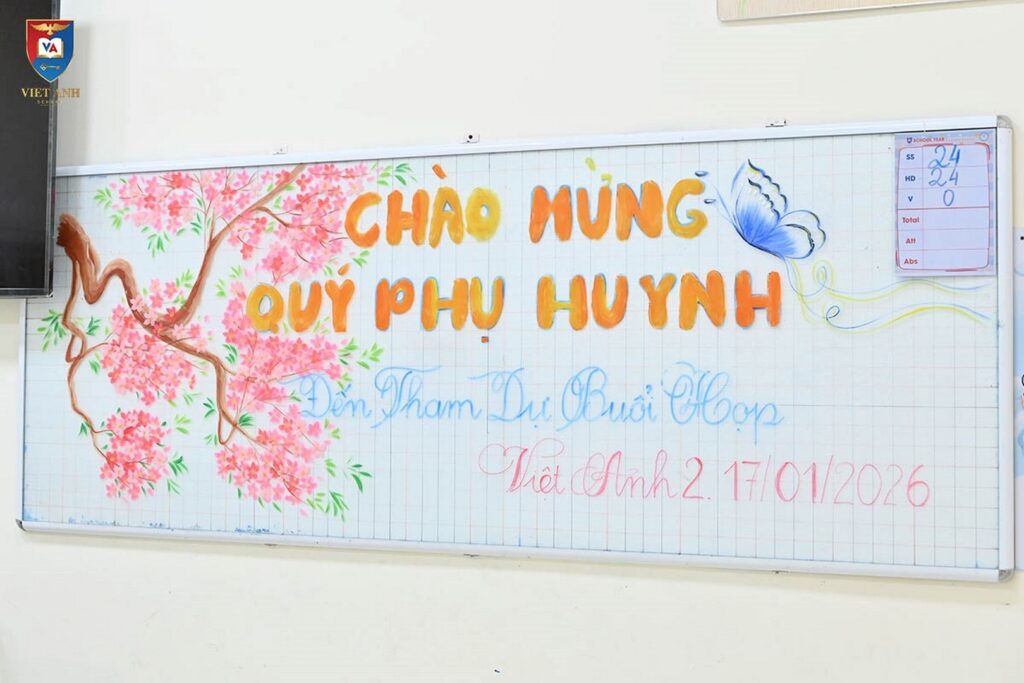 VA
VIET ANH
SCHOOL
CHÀO MỪNG
QUÝ PHỤ HUYNH
Đến Tham Dự Buổi Họp
Việt Anh 2. 17/01/2026
SCHOOL YEAR
SS 24
HD 24
V 0
Total
Att
Abs